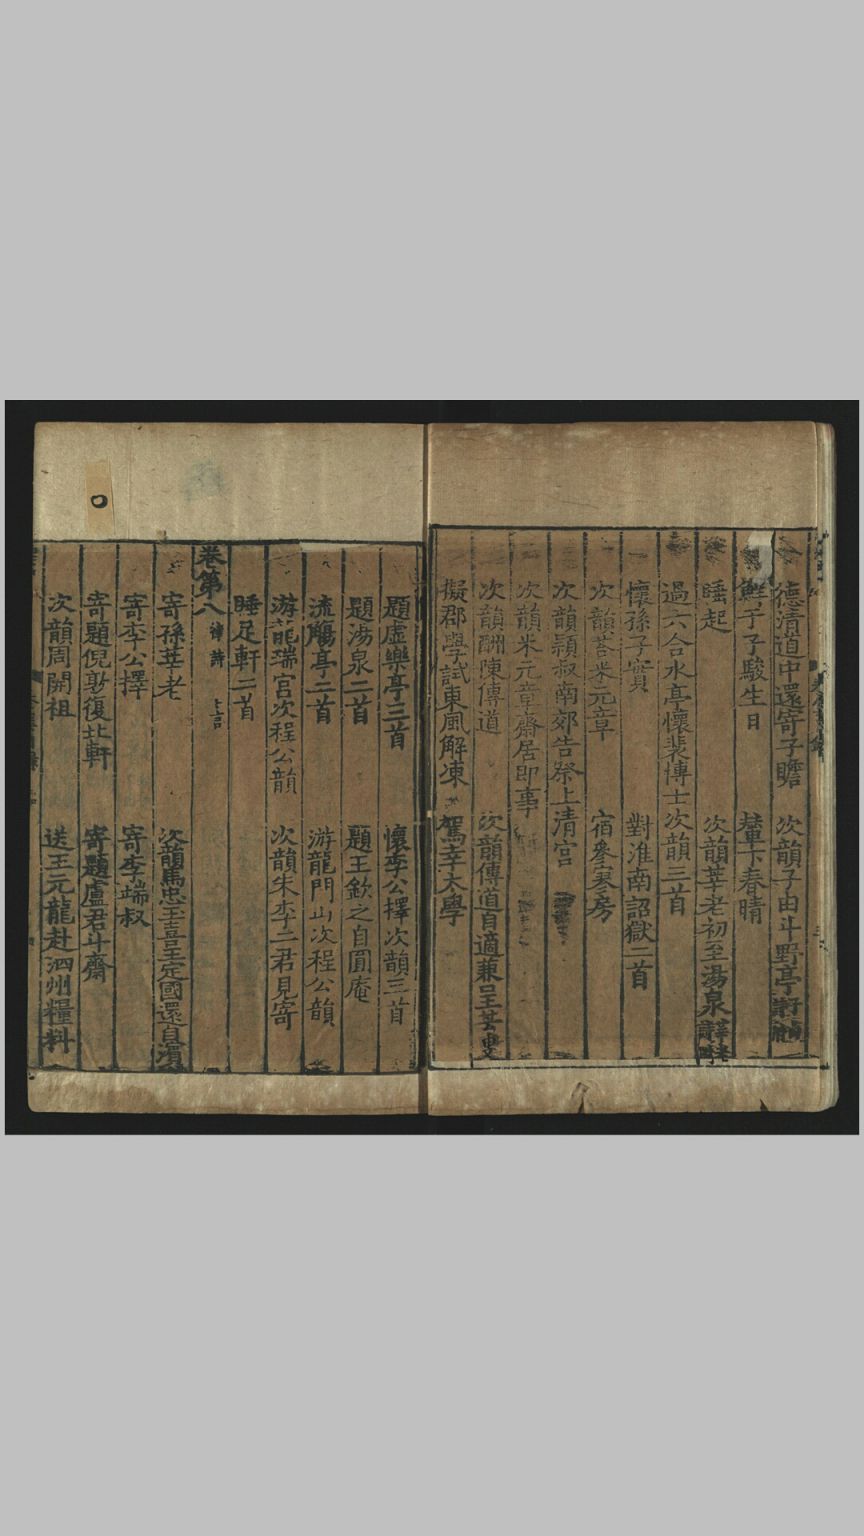 德清道中還寄子瞻 次韻子由斗野亭
鮮于子駿生日 輦下春晴
睡起 次韻莘老初至湯泉
過六合水亭懷裴博士次韻三首
懷孫子實 對淮南詔獄二首
次韻荅米元章 宿參寥房
次韻穎叔南郊告祭上清宮
次韻米元章齋居即事
次韻酬陳傳道 次韻傳道自適兼呈
擬郡學試東風解凍 駕幸太學
題虛樂亭三首 懷李公擇次韻三首
題湯泉二首 題王欽之自圓庵
流觴亭二首 游龍門山次程公韻
游龍瑞宮次程公韻 次韻朱李二君見寄
睡足軒二首
卷第八 律詩 七言
寄孫莘老 次韻馬忠玉喜王定國還自濱
寄李公擇 寄李端叔
寄題倪敦復北軒 寄題盧君斗齋
次韻周開祖 送王元龍赴泗州糧料